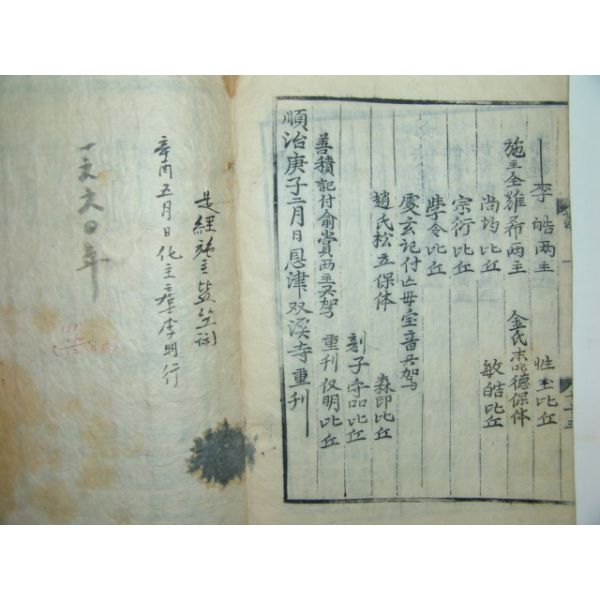 李 皓兩主 性圭比丘
施主全雄希兩主 金氏末叱德保体
尚均比丘 敏皓比丘
宗行比丘
學令比丘
處玄記付亡母宝音灵駕
趙氏松立保体 森印比丘
刻子守品比丘
善積記付俞賞兩主灵駕 重刊仅明比丘
順治庚子二月日恩津双溪寺重刊
是經施主
辛酉五月日化主李明行
一六六〇年